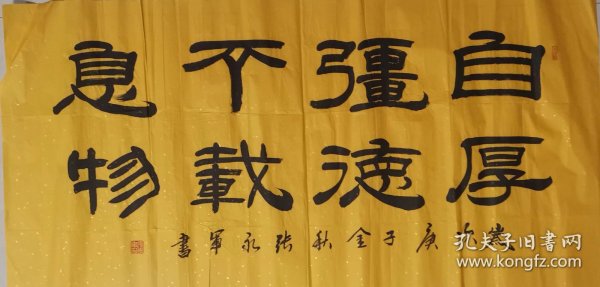 自彊不息
厚德載物
歲次庚子金秋張永軍書
孔夫子旧书网
www.kongfz.com